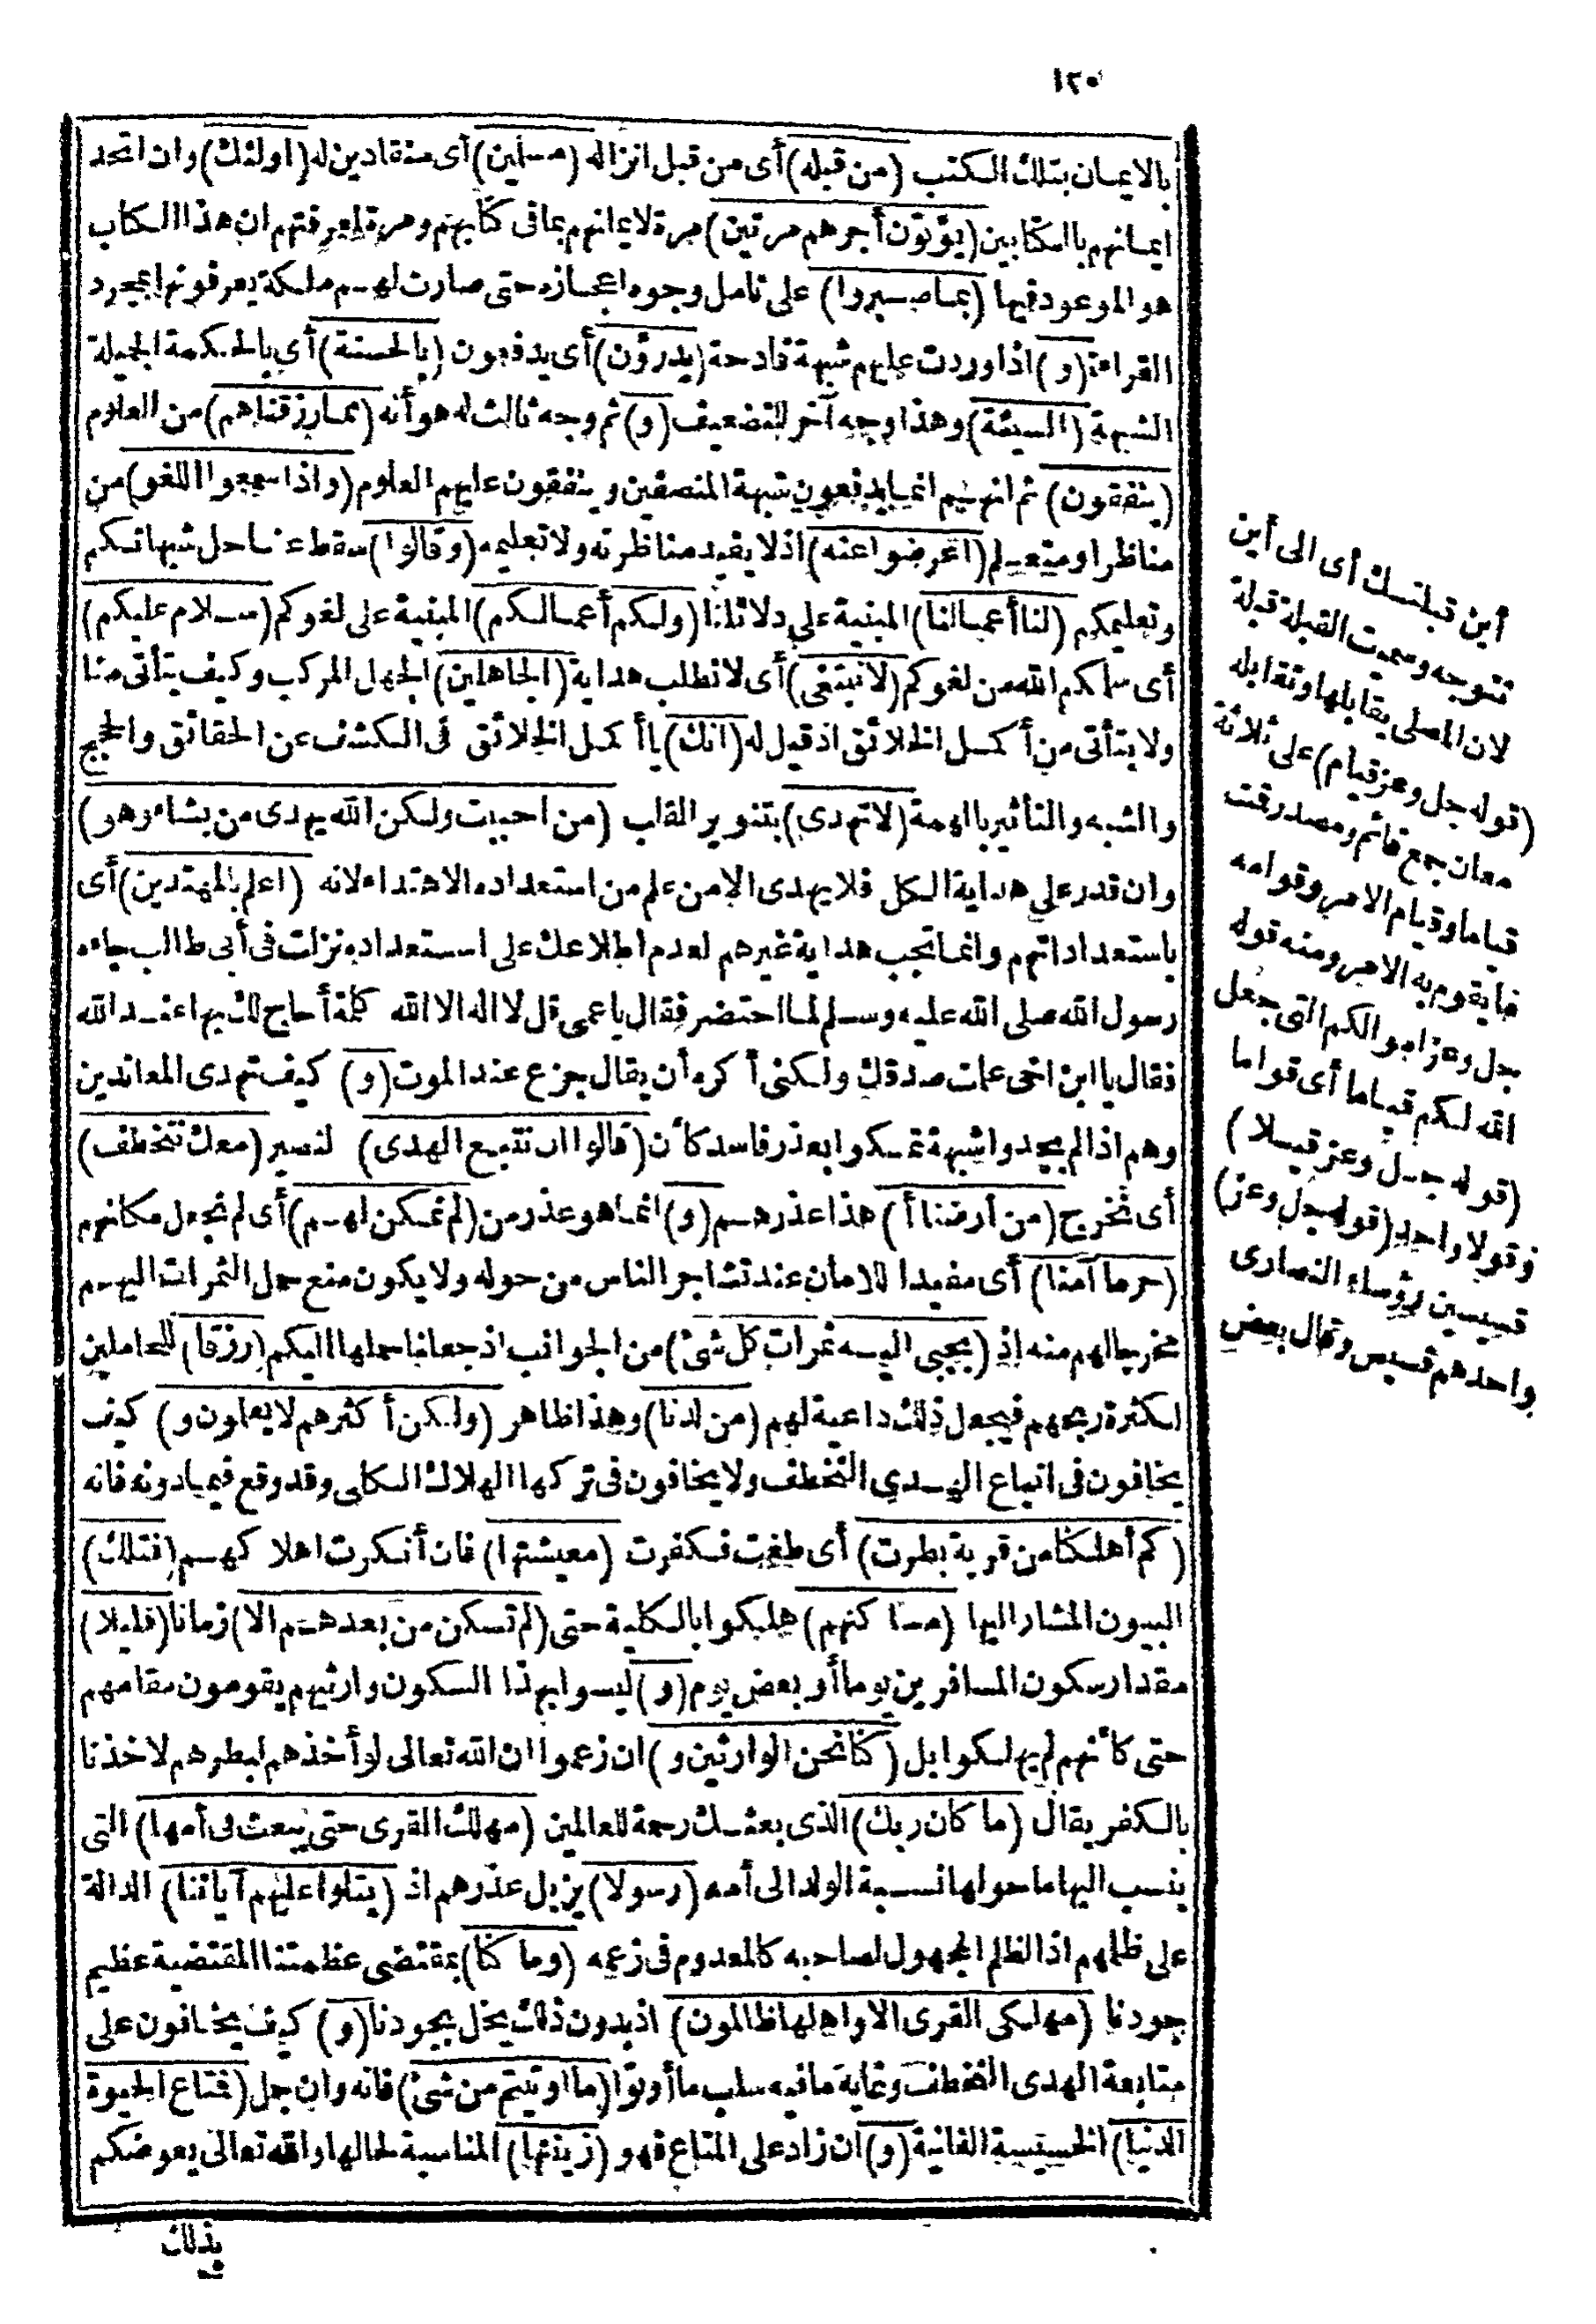 ١٢٠
بالايمان بتلك الكتب (من قبله) أى من قبل انزاله (مسلمين) أى منقادين له (أولئك) وان اتحد
ايمانهم بالكتابين (يؤتون أجرهم مرتين) مرة لايمانهم بما فى كتابهم ومرة لمعرفتهم ان هذا الكتاب
هو الموعود فيها (بما صبروا) على تأمل وجوه اعجازه حتى صارت لهم ملكة يعرفونها بمجرد
القراءة (و) اذا وردت عليهم شبهة قادحة (يدرؤن) أى يدفعون (بالحسنة) أى بالحكمة الجميلة
الشبهة (السيئة) وهذا وجه آخر للتضعيف (و) ثم وجه ثالث له هو أنه (مما رزقناهم) من العلوم
(ينفقون) ثم انهم انما يدفعون شبهة المنصفين وينفقون عليهم العلوم (واذا سمعوا اللغو) من
مناظر او متعلم (اعرضوا عنه) اذ لا يفيد مناظرته ولا تعليمه (وقالوا) سقط عنا حل شبهاتكم
وتعليمكم (لنا أعمالنا) المبنية على دلائلنا (ولكم أعمالكم) المبنية على لغوكم (سلام عليكم)
أى سلمكم الله من لغوكم (لانبتغى) أى لا نطلب هداية (الجاهلين) الجهل المركب وكيف يتأتى منا
ولا يتأتى من أكمل الخلائق اذ قيل له (انك) يا أكمل الخلائق فى الكشف عن الحقائق والحجج
والشبه والتأثير بالهمة (لا تهدى) بتنوير القلب (من احببت ولكن الله يهدى من يشاء وهو)
وان قدر على هداية الكل فلا يهدى الا من علم من استعداده الاهتداء لانه (اعلم بالمهتدين) أى
باستعداداتهم وانما تجب هداية غيرهم لعدم اطلاعك على استعداده نزلت فى أبى طالب جاءه
رسول الله صلى الله عليه وسلم لما احتضر فقال يا عمى قل لا اله الا الله كلمة أحاج لك بها عند الله
فقال يا ابن اخى علمت صدقك ولكنى أكره أن يقال جزع عند الموت (و) كيف تهدى المعاندين
وهم اذا لم يجدوا شبهة تمسكوا بعذر فاسد كأن (قالوا ان نتبع الهدى) لنصير (معك نتخطف)
أى نخرج (من أرضنا أ) هذا عذرهم (و) انما هو عذر من (لم نمكن لهم) أى لم نجعل مكانهم
(حرما آمنا) أى مفيدا للامان عند تشاجر الناس من حوله ولا يكون منع حمل الثمرات اليهم
مخرجا لهم منه اذ (يجبى اليه ثمرات كل شئ) من الجوانب اذ جعلنا حملها اليكم (رزقا) للحاملين
لكثرة ربحهم فيجعل ذلك داعية لهم (من لدنا) وهذا ظاهر (ولكن أكثرهم لا يعلمون و) كيف
يخافون فى اتباع الهدى التخطف ولا يخافون فى تركها الهلاك الكلى وقد وقع فيما دونه فانه
(كم أهلكنا من قرية بطرت) أى طغت فكفرت (معيشتها) فان أنكرت اهلاكهم (فتلك)
البيوت المشار اليها (مساكنهم) هلكوا بالكلية حتى (لم تسكن من بعدهم الا) زمانا (قليلا)
مقدار سكون المسافرين يوما أو بعض يوم (و) ليسوا بهذا السكون وارثيهم يقومون مقامهم
حتى كأنهم لم يهلكوا بل (كنا نحن الوارثين و) ان زعموا ان الله تعالى لو أخذهم لبطرهم لاخذنا
بالكفر يقال (ما كان ربك) الذى بعثك رحمة للعالمين (مهلك القرى حتى يبعث فى أمها) التى
ينسب اليها ما حولها نسبة الولد الى أمه (رسولا) يزيل عذرهم اذ (يتلوا عليهم آياتنا) الدالة
على ظلمهم اذ الظلم المجهول لصاحبه كالمعدوم فى زعمه (وما كنا) بمقتضى عظمتنا المقتضية عظيم
جودنا (مهلكى القرى الا واهلها ظالمون) اذ بدون ذلك يخل بجودنا (و) كيف يخافون على
متابعة الهدى التخطف وغاية ما فيه سلب ما أوتوا (ما اوتيتم من شئ) فانه وان جل (فمتاع الحيوة
الدنيا) الخسيسة الفانية (و) ان زاد على المتاع فهو (زينتها) المناسبة لحالها والله تعالى يعوضكم
بذلك
أين قبلتك أى الى أين
تتوجه وسميت القبلة قبلة
لان المصلى يقابلها وتقابله
(قوله جل وعز قيام) على ثلاثة
معان جمع قائم ومصدر قمت
قياما وقيام الامر وقوامه
ما يقوم به الامر ومنه قوله
جل وعز اموالكم التى جعل
الله لكم قياما أى قواما
(قوله جل وعز قيلا)
وقولا واحد (قوله جل وعز)
قسيسين رؤساء النصارى
واحدهم قسيس وقال بعض